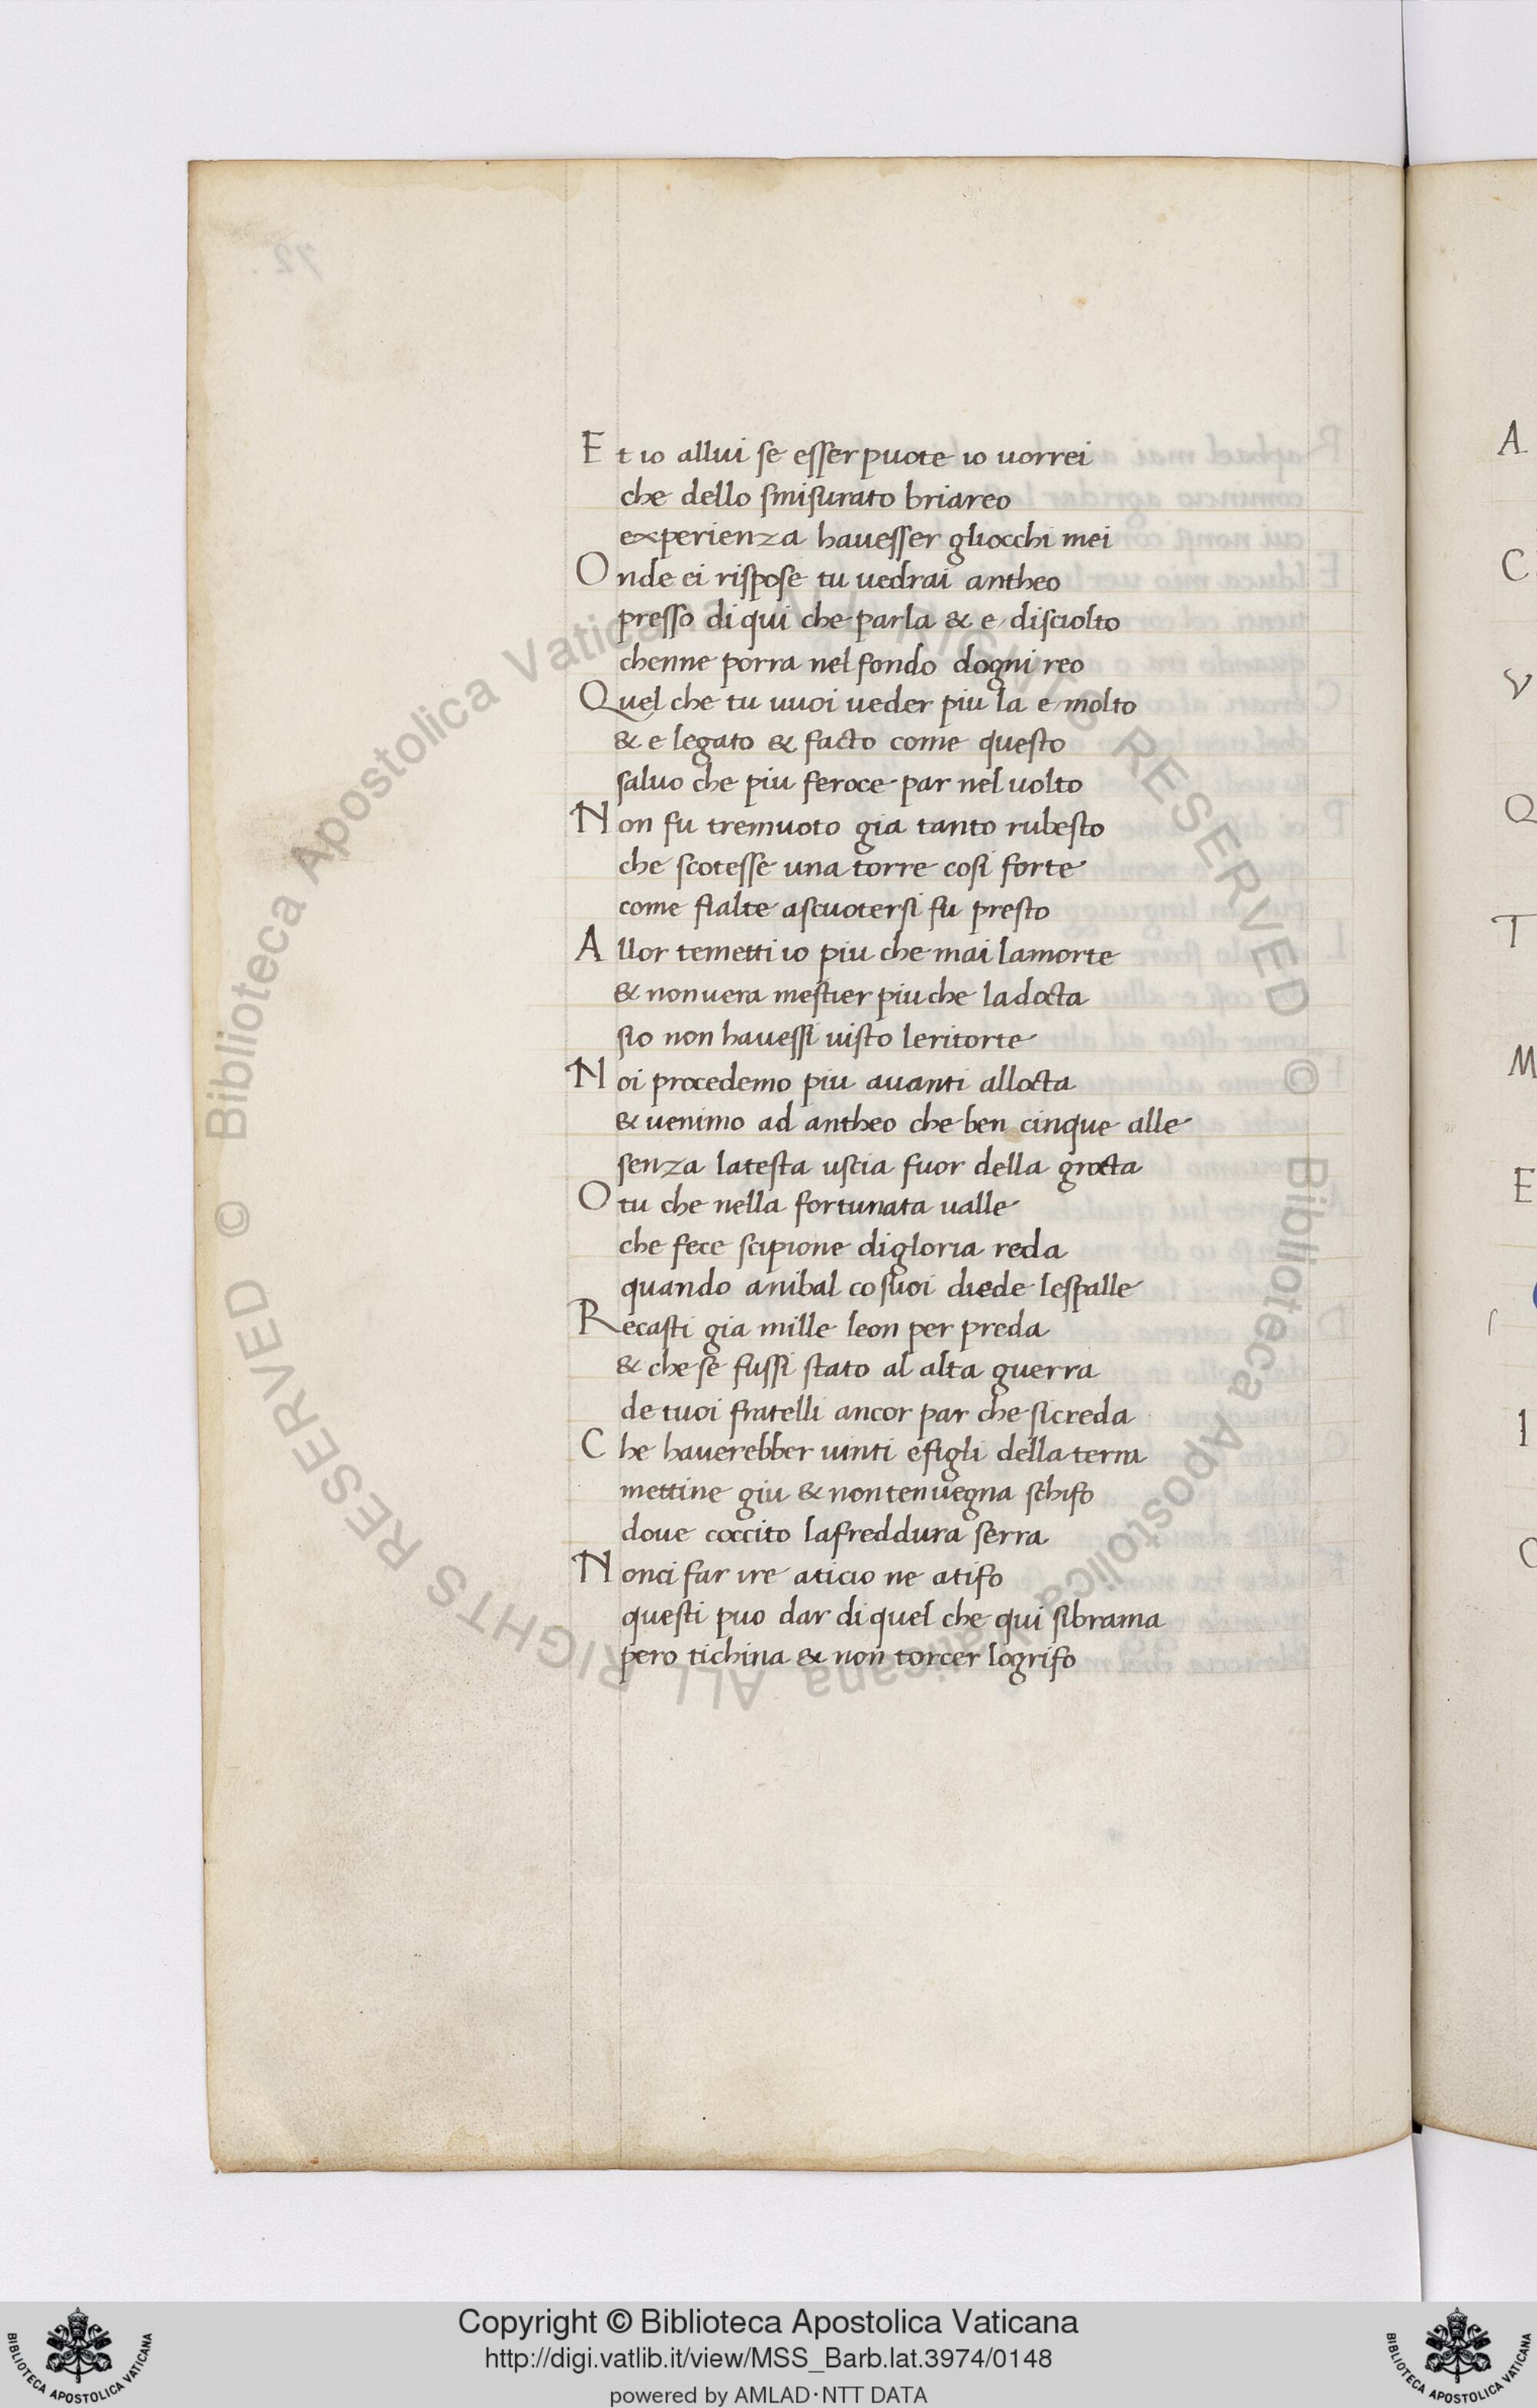 Et io allui se esser puote io uorrei
che dello smisurato briareo
experienza hauesser gliocchi mei
Onde ei rispose tu uedrai antheo
presso di qui che parla & e disciolto
chenne porra nel fondo dogni reo
Quel che tu uuoi ueder piu la e molto
& e legato & facto come questo
saluo che piu feroce par nel uolto
Non fu tremuoto gia tanto rubesto
che scotesse una torre cosi forte
come fialte ascuotersi fu presto
Allor temetti io piu che mai lamorte
& non uera mestier piu che la docta
sio non hauessi uisto leritorte
Noi procedemo piu auanti allocta
& uenimo ad antheo che ben cinque alle
senza latesta uscia fuor della grocta
O tu che nella fortunata ualle
che fece scipione di gloria reda
quando anibal co suoi diede lespalle
Recasti gia mille leon per preda
& che se fussi stato al alta guerra
de tuoi fratelli ancor par che sicreda
Che hauerebber uinti efigli della terra
mettine giu & non ten uegna schifo
doue coccito lafreddura serra
Nonci far ire aticio ne atifo
questi puo dar di quel che qui sibrama
pero tichina & non torcer logrifo
A
C
V
Q
T
M
E
1
C
© Biblioteca Apostolica Vaticana ALL RIGHTS RESERVED © Biblioteca Apostolica Vaticana ALL RIGHTS RESERVED
Copyright © Biblioteca Apostolica Vaticana
http://digi.vatlib.it/view/MSS_Barb.lat.3974/0148
powered by AMLAD·NTT DATA
BIBLIOTECA APOSTOLICA VATICANA
BIBLIOTECA APOSTOLICA VATICANA